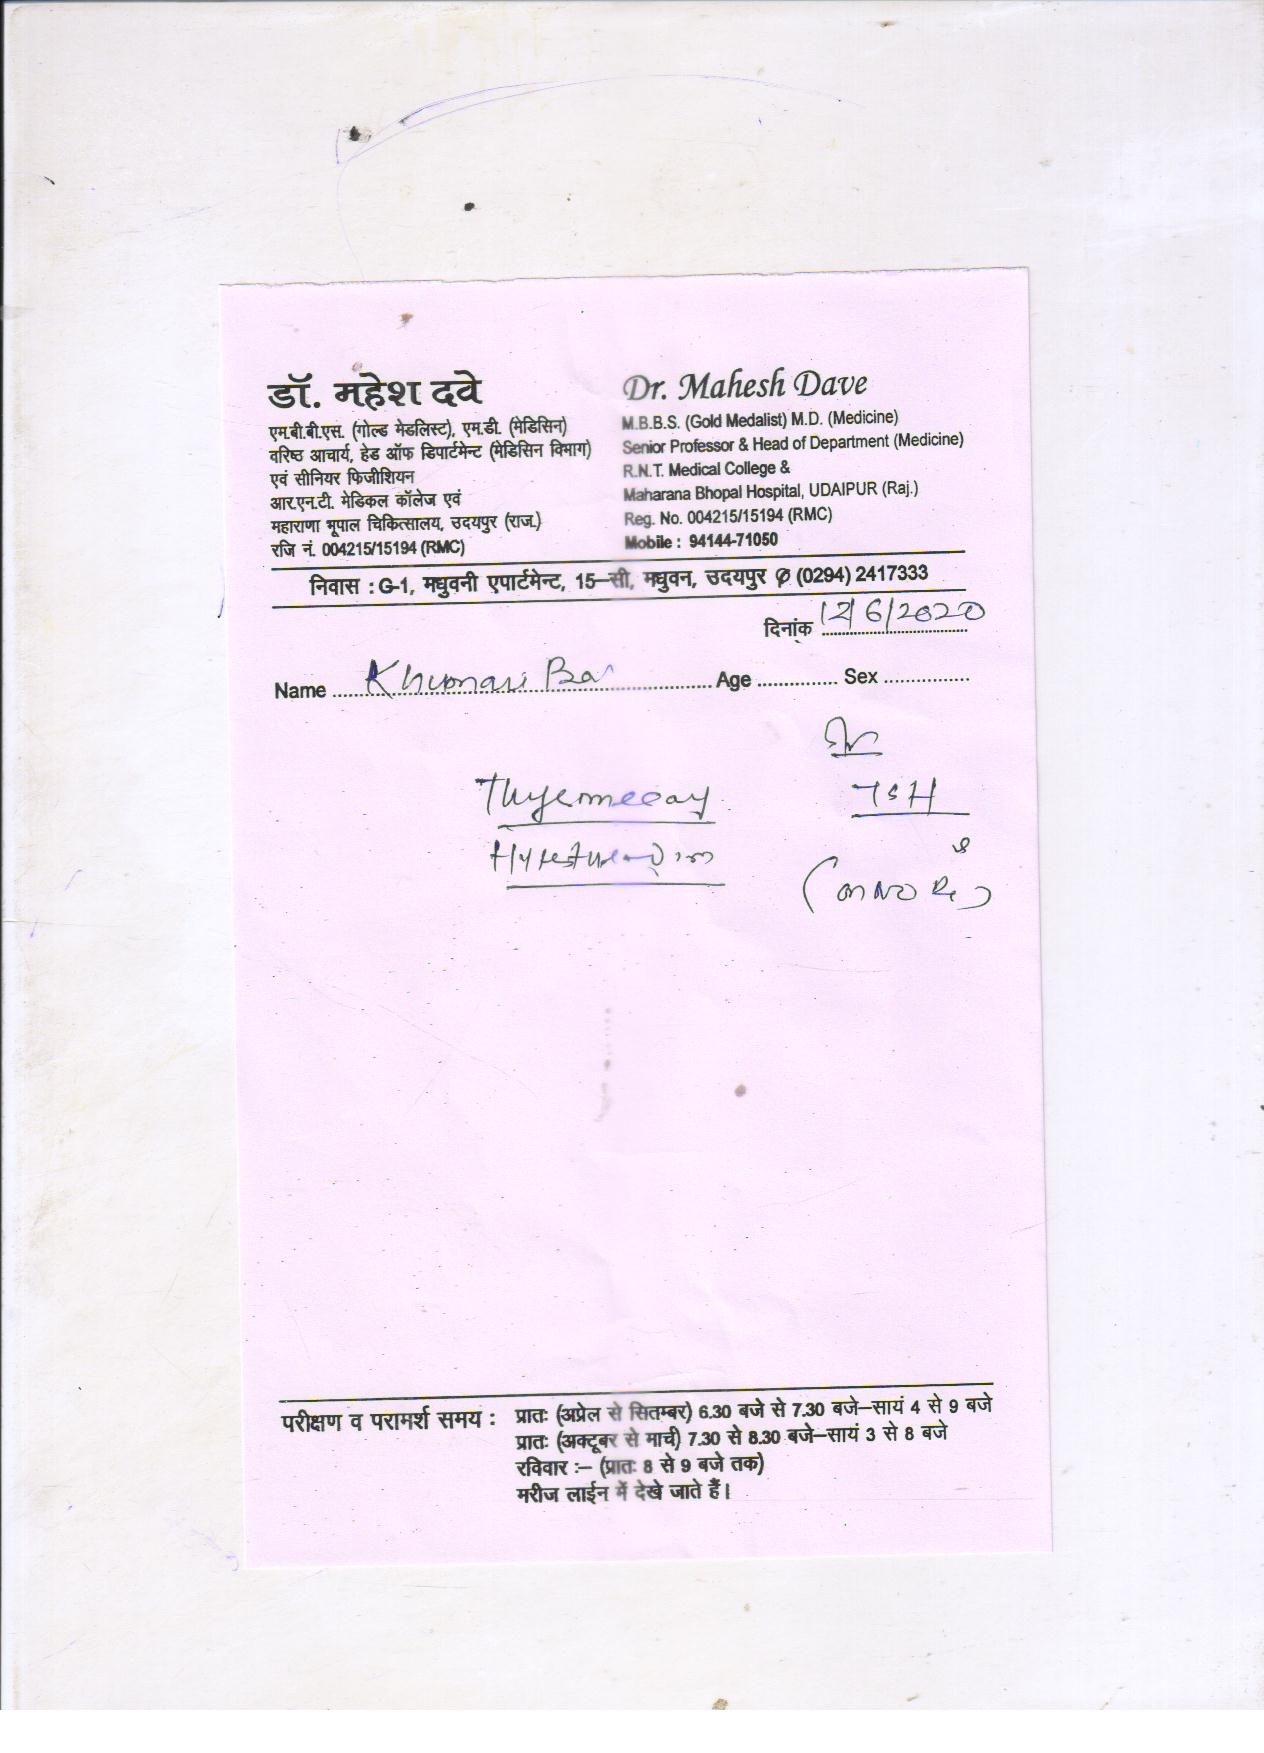 डॉ. महेश दवे
एम.बी.बी.एस. (गोल्ड मेडलिस्ट), एम.डी. (मेडिसिन)
वरिष्ठ आचार्य, हेड ऑफ डिपार्टमेन्ट (मेडिसिन विभाग)
एवं सीनियर फिजीशियन
आर.एन.टी. मेडिकल कॉलेज एवं
महाराणा भूपाल चिकित्सालय, उदयपुर (राज.)
रजि नं. 004215/15194 (RMC)
Dr. Mahesh Dave
M.B.B.S. (Gold Medalist) M.D. (Medicine)
Senior Professor & Head of Department (Medicine)
R.N.T. Medical College &
Maharana Bhopal Hospital, UDAIPUR (Raj.)
Reg. No. 004215/15194 (RMC)
Mobile : 94144-71050
निवास : G-1, मधुवनी एपार्टमेन्ट, 15–सी, मधुवन, उदयपुर ✆ (0294) 2417333
दिनांक 12/6/2020
Name Khumari Bai Age Sex
TSH
परीक्षण व परामर्श समय : प्रातः (अप्रेल से सितम्बर) 6.30 बजे से 7.30 बजे–सायं 4 से 9 बजे
प्रातः (अक्टूबर से मार्च) 7.30 से 8.30 बजे–सायं 3 से 8 बजे
रविवार :– (प्रातः 8 से 9 बजे तक)
मरीज लाईन में देखे जाते हैं।